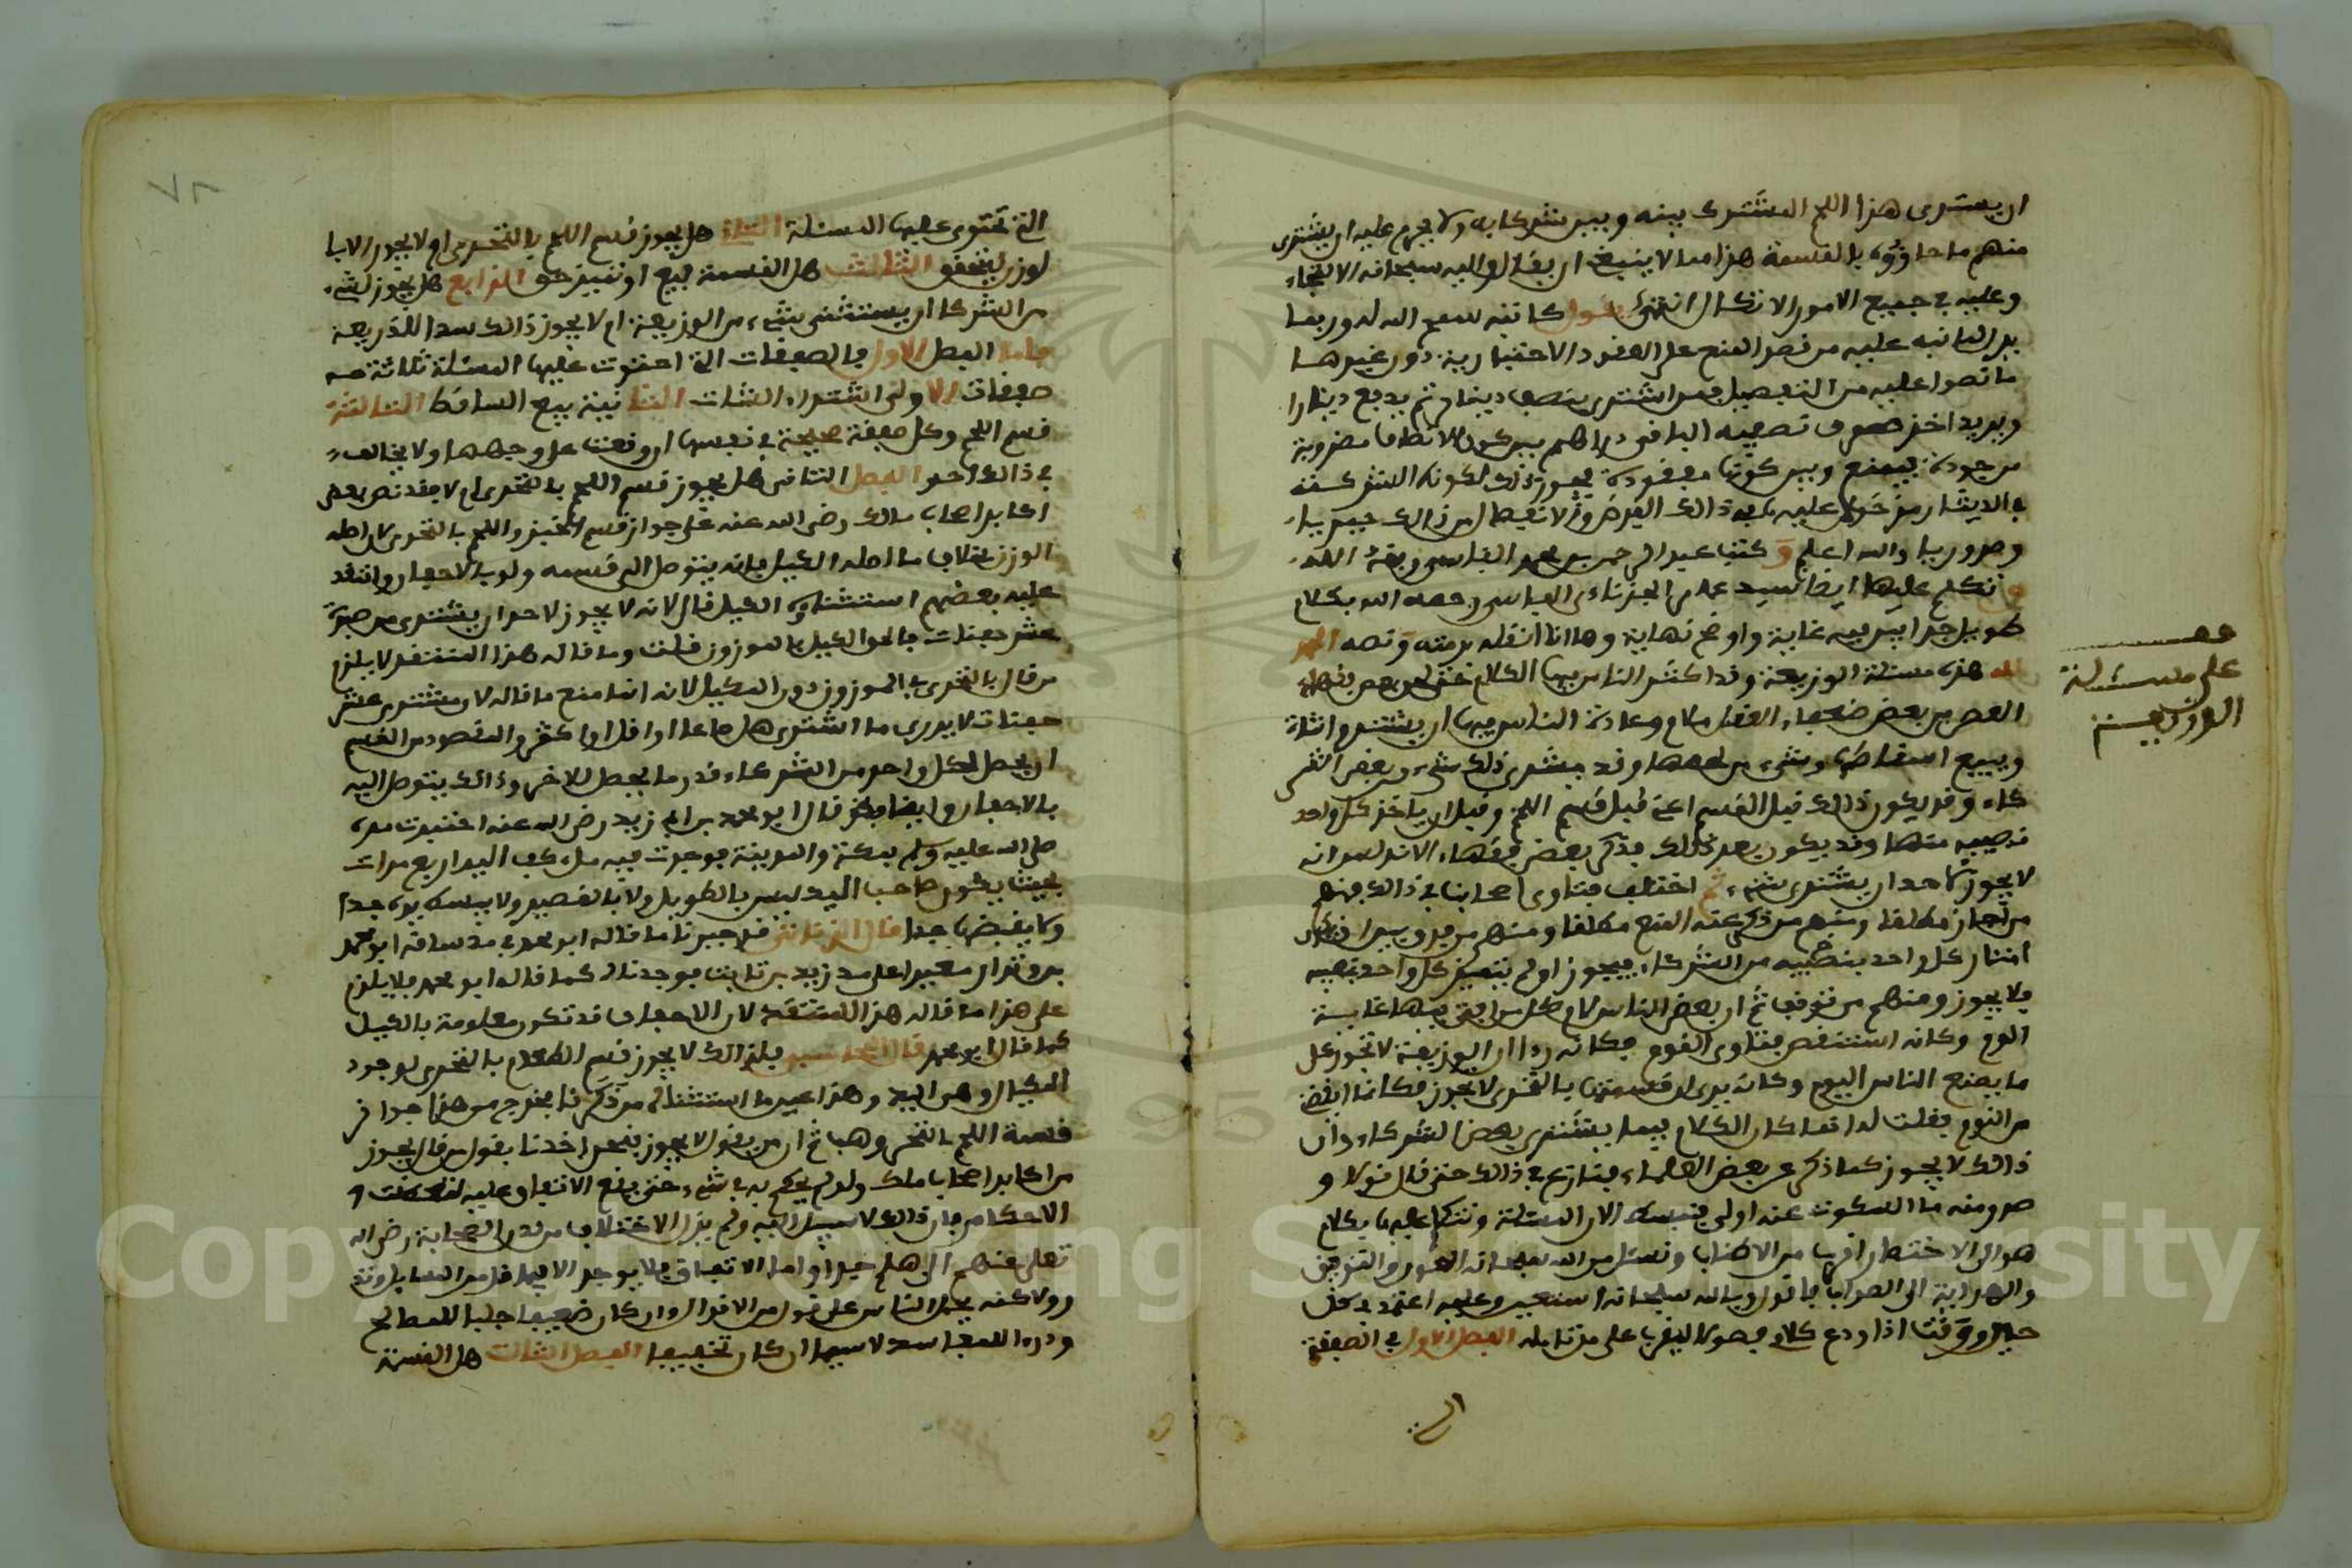 ان يشترى هذا اللحم المشترك بينه وبين شركايه ولا يحرم عليه ان يشترى
منهم ما حازوه بالقسمة هذا مما لا ينبغى ان يقال واليه سبحانه الالتجاء
وعليه في جميع الامور الاتكال انتهى يقول كاتبه سمح الله له وربما
يدل لما نبه عليه من قصر المنع على العقود الاختيارية دون غيرها
ما نصوا عليه من التفصيل فيمن اشترى بنصف دينار ثم يدفع دينارا
ويريد اخذ صرف نصفه الباقى دراهم بين كون الانصاف مضروبة
موجودة فيمنع وبين كونها مفقودة فيجوز ذلك لكونه الشركة
في الدينار
وضروريا والله اعلم وكتب عبد الرحمن بن محمد الفاسى وفقه الله
وتكلم عليها ايضا سيد على الجزناءى الفاسى رحمه الله بكلام
طويل جدا ليس فيه غاية واوضح نهاية وها انا انقله برمته ونصه الحمد
لله هذه مسئلة الوزيعة وقد اكثر الناس فيها الكلام
العصر من بعض ضعفاء العقل مالام وعادة الناس فيها ان يشتروا شاة
ويبيع اسقاطها وشىء من لحمها وقد يشترى ذلك شىء من بعض الشر
كاء وقد يكون ذلك قبل القسم اعنى قبل قسم اللحم وقبل ان ياخذ كل واحد
نصيبه منها وقد يكون بعد ذلك فذكر بعض فقهاء الاندلس انه
لا يجوز لاحد ان يشترى شىء ثم اختلف فتاوى اصحابنا في ذلك فمنهم
من اجاز مطلقا ومنهم من ذكر عنه المنع مطلقا ومنهم من فرق بين ان
امتاز كل واحد بنصيبه من الشركاء فيجوز او لم يتميز كل واحد بنصيبه
فلا يجوز ومنهم من توقف ثم ان بعض الناس
اللوم وكانه استنقص فتاوى القوم فكانه رءا ان الوزيعة لا تجوز على
ما يصنع الناس اليوم وكانه يرى ان قسمتها بالتحرى لا يجوز فكانما ايقض
من النوم فقلت له انما كان الكلام فيما يشترى بعض الشركاء وان
ذلك لا يجوز كما ذكر عن بعض العلماء فتنازع في ذلك حتى قال قولا و
صدر منه ما السكوت عنه اولى فنبسط الان المسئلة ونتكلم عليها بكلام
هو الى الاختصار اقرب من الاطناب ونسئل من الله سبحانه العون والتوفيق
والهداية الى الصواب فاقول وبالله سبحانه استعين وعليه اعتمد في كل
حين ووقت اذا ودع كلام فصولا ليقرب على من تامله الفصل الاول في الصفقة
التى
على مسئلة
الوزيعة
التى تحتوى عليها المسئلة الثانى هل يجوز قسم اللحم بالتحرى او لا يجوز الا با
لوزن ليتحقق الثالث هل القسمة بيع او تمييز حق الرابع هل يجوز لشىء
من الشركا ان يستثنى شىء من الوزيعة ام لا يجوز ذلك سدا للذريعة
فاما الفصل الاول فالصفقات التى احتوت عليها المسئلة ثلاثة
صفقات الاولى اشتراء الشات الثانية بيع الساقط الثالثة
قسم اللحم وكل صفقة صحيحة في نفسها ان وقعت على وجهها ولا يخالف
في ذلك احد الفصل الثانى هل يجوز قسم اللحم بالتحرى ام لا فقد نص بعض
اكابر اصحاب مالك رضى الله عنه على جواز قسم الخبز واللحم بالتحرى لان اصله
الوزن بخلاف ما اصله الكيل فانه يتوصل الى قسمه ولو بالاحفان وانتقد
عليه بعضهم استثناءه الكيل قال لانه لا يجوز لاحد ان يشترى من صبرة
عشر حفنات فالحق الكيل بالموزون قلت وما قاله هذا المنتقد لا يلزم
من قال بالتحرى في الموزون دون المكيل لانه انما منع ما قاله لان مشترى عشر
حفنات لا يدرى ما اشترى هل صاعا او اقل او اكثر والمقصود من القسم
ان يحصل لكل واحد من الشركاء قدر ما يحصل للاخر وذلك يتوصل اليه
بالاحفان وايضا فلقد قال ابو محمد بن ابى زيد رضى الله عنه اختبرت مده
صلى الله عليه وسلم بمكة والمدينة فوجدت فيه ملء كف اليد اربع مرات
بحيث يكون صاحب اليد ليس بالطويل ولا بالقصير ولا يبسط يده جدا
ولا يقبضها جدا قال الزناتى قد جبرنا ما قاله ابو محمد في مد ساقه ابو محمد
معيرا على مد زيد بن ثابت فوجدناه كما قاله ابو محمد فلا يلزم
على هذا ما قاله هذا المنتقد لان الاحفان قد تكون معلومة بالكيل
كما قال ابو محمد فان قيل يلزم لك لا يجوز قسم الطعام بالتحرى لوجود
المكيال وهى اليد وهذا عين ما استثناه من ذكرنا فخرج من هذا جواز
قسمة اللحم بالتحرى وهب ثم ان من يقول لا يجوز فنحن اخذنا بقول من قال يجوز
من اكابر اصحاب مالك ولو لم يحكم به في شىء حتى يقع الاتفاق عليه لتعطلت
الاحكام فان ذلك لا سبيل اليه ولم يزل الاختلاف من لدن الصحابة رضى الله
تعلى عنهم الى هلم جرا واما الاتفاق فلا يوجد الا فيما قل من المسايل
ولاكنه يحمل الناس على قول من الاقوال وان كان ضعيفا جلبا للمصالح
ودرء اللمفاسد لا سيما ان كان تخفيفا الفصل الثالث هل القسمة